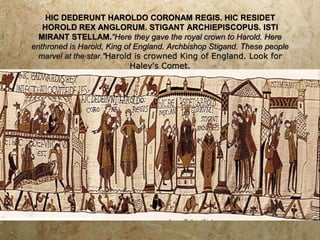 HIC DEDERUNT HAROLDO CORONAM REGIS. HIC RESIDET
HOROLD REX ANGLORUM. STIGANT ARCHIEPISCOPUS. ISTI
MIRANT STELLAM."Here they gave the royal crown to Harold. Here
enthroned is Harold, King of England. Archbishop Stigand. These people
marvel at the star."Harold is crowned King of England. Look for
Haley's Comet.
HIC DEDERVNT
REGIS
STIGANT